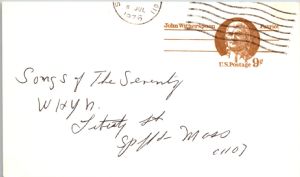 JUL
1976
John Witherspoon Patriot
U.S. Postage 9¢
Songs of The Seventy
WHYN.
Liberty St
Spfld Mass
01107